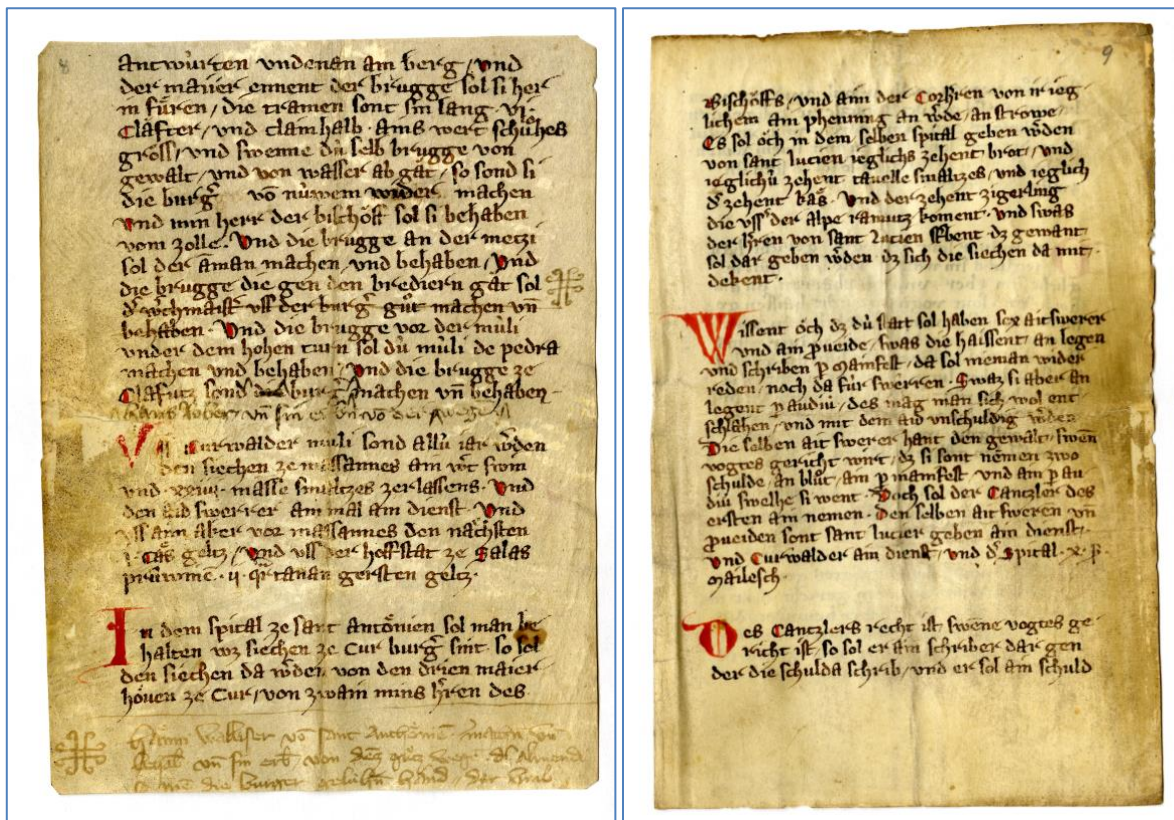 8
antwúrten vndenan am berg / vnd
der maiier ennent der brugge sol si her
in fu̍ren / die tramen sont sin lang · vi ·
Clafter / vnd ainhalb · ains wert schu̍hes
gross / vnd swenne dú selb brugge von
gewalt / vnd von wasser ab gat / so sond si
die burg̃ vō núwem wider machen
Vnd min herr der bischoff sol si behaben
vom zolle · Vnd die brugge an der metzi
sol der āman machen / vnd behaben / Vnd
die brugge die gen den brediern gat sol
vss der burg̃ gu̍t machen vn̄
behaben · Vnd die brugge vor der múli
vnder dem hohen turn sol dú múli de pedra
machen vnd behaben / Vnd die brugge ze
Clafutz sond burg̃ machen vn̄ behaben ·
vn̄ sin
Curwalder múli sond allú iar ẘden
den siechen ze massannes ain swin
vnd masse smaltzes zerlassens · Vnd
den aid swerrer ain mal ain dienst · Vnd
vss aim aker vor massannes den nächsten
geltz / Vnd vss der hoffstat ze Salas
prúwine · ii · gersten geltz ·
In dem spital ze sant antönien sol man be
halten wz siechen ze Cur burg̃ sint · so sol
den siechen da ẘden von den drien maier
höuen ze Cur / von zwain mins h̃ren des
Walliser vō sant
vn̄ sin von
die burger
9
Bischoffs / vnd aim der Corh̃ren von ir ieg
lichem ain phenning an ẘde / an strowe ·
Es sol öch in dem selben spital geben ẘden
von sant lucien ieglichs zehent brot / vnd
ieglichú zehent tauelle smaltzes / vnd ieglich
d̓ zehent käs · Vnd der zehent zigerling
die vss der alpe ramutz koment · vnd swas
der h̃ren von sant Lucien sterbent · dz gewant
sol dar geben ẘden dz sich die siechen da mit
dekent ·
Wissent öch dz dú statt sol haben aitswerer
vnd ain p̱ueide / swas die haissent an legen
vnd schriben p̱ mainfest / da sol nieman wider
reden / noch da fúr swerren · Swaz si aber an
legent p̱ audiu / des mag man sich wol ent
schlahen / vnd mit dem aid vnschuldig ẘden
Die selben ait swerer hant den gewalt / swen̄
vogtes gericht wirt / dz si sont nemen zwo
schulde / an blu̍t / ain p̱ mainfest vnd ain p̱ au
diu swelhe si went · Doch sol der Cantzler des
ersten ain nemen · Den selben ait sweren vn̄
p̱ueiden sont sant lucier geben ain dienst ·
Vnd Curwalder ain dienst / vnd d̓ Spital · x · p̱
Mailesch ·
Des Cantzlers recht ist swene vogtes ge
richt ist / so sol er ain schriber dar gen
der die schulda schrib / vnd er sol ain schuld